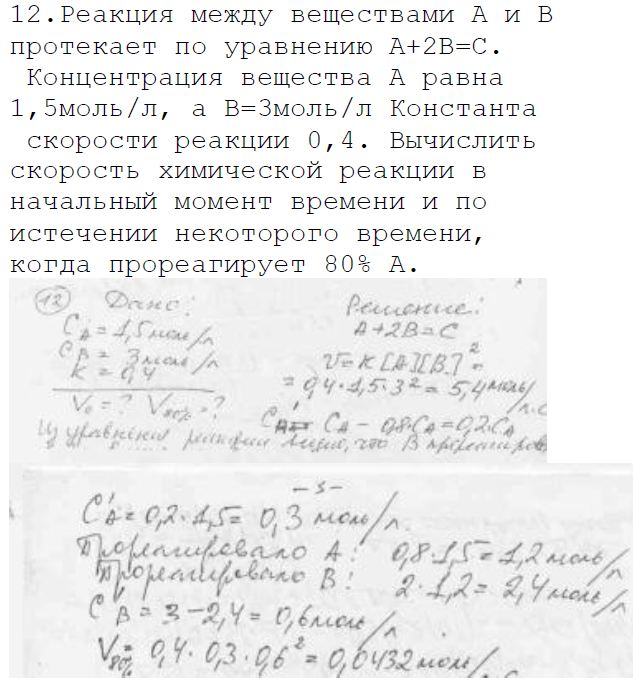 12.Реакция между веществами А и В
протекает по уравнению А+2В=С.
Концентрация вещества А равна
1,5моль/л, а В=3моль/л Константа
скорости реакции 0,4. Вычислить
скорость химической реакции в
начальный момент времени и по
истечении некоторого времени,
когда прореагирует 80% А.
12 Дано:
C_A = 1,5 моль/л
C_B = 3 моль/л
K = 0,4
V₀ = ? V₈₀% = ?
Решение:
A+2B=C
V = K [A][B]² =
= 0,4·1,5·3² = 5,4 моль/л·с
C_A - 0,8·C_A = 0,2·C_A
Из уравнения реакции видно, что В прореагиров
-3-
C'_A = 0,2·1,5 = 0,3 моль/л
Прореагировало А: 0,8·1,5 = 1,2 моль/л
Прореагировало В: 2·1,2 = 2,4 моль/л
C'_B = 3-2,4 = 0,6 моль/л
V₈₀% = 0,4·0,3·0,6² = 0,0432 моль/